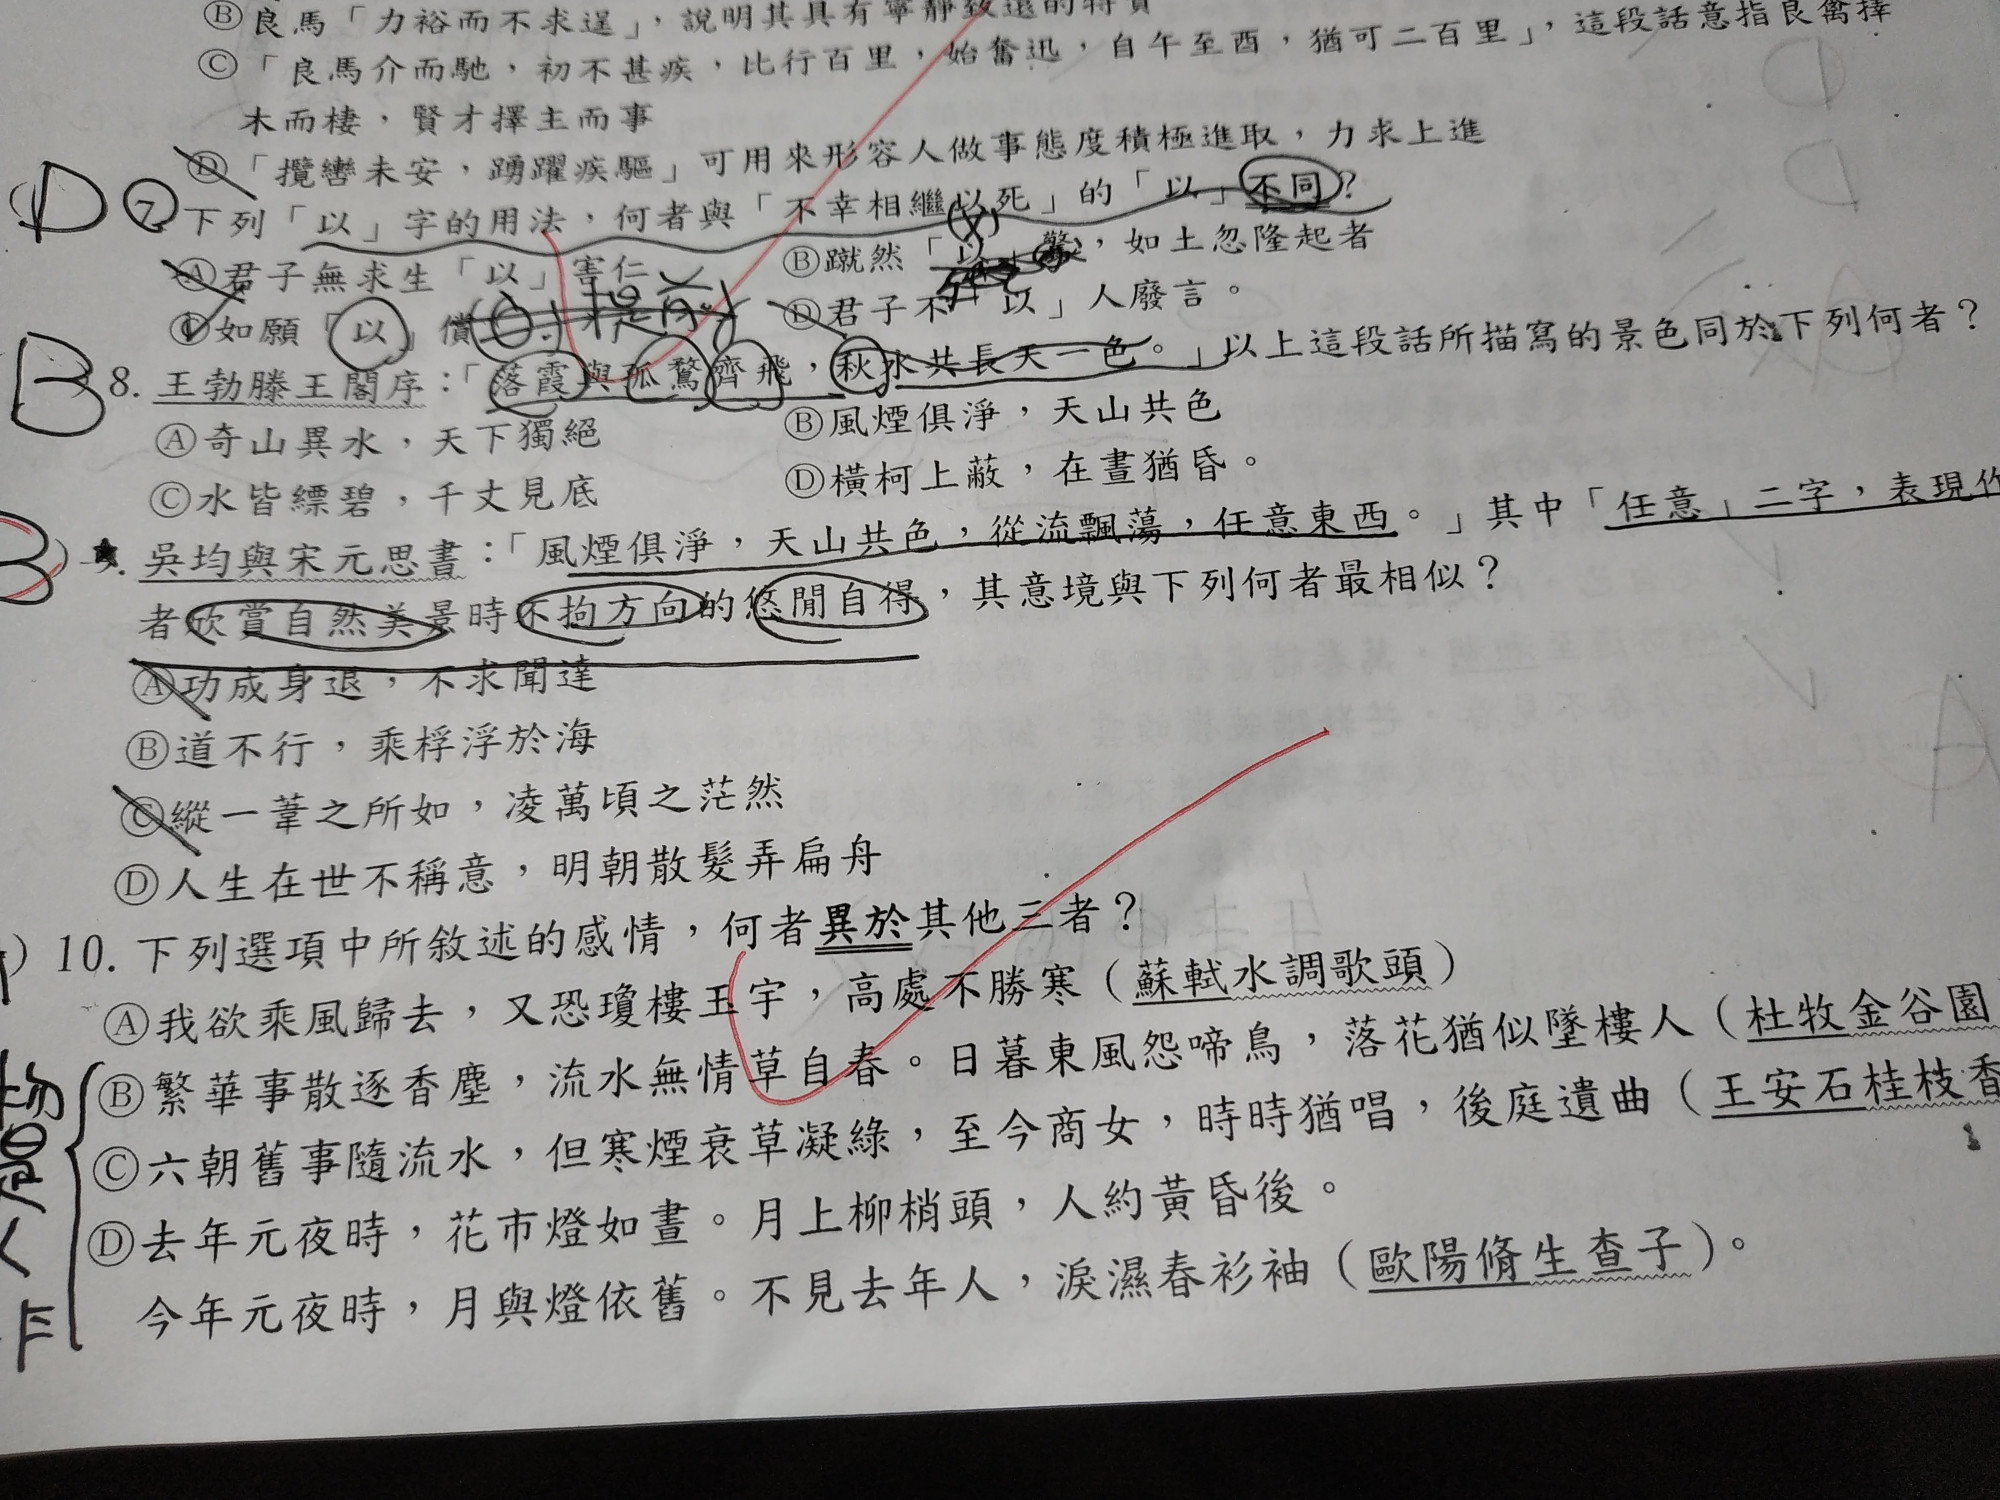 Ⓑ良馬「力裕而不求逞」，說明其具有寧靜致遠的特質
Ⓒ「良馬介而馳，初不甚疾，比行百里，始奮迅，自午至酉，猶可二百里」，這段話意指良禽擇
木而棲，賢才擇主而事
Ⓓ「攬轡未安，踴躍疾驅」可用來形容人做事態度積極進取，力求上進
D 7. 下列「以」字的用法，何者與「不幸相繼以死」的「以」不同？
Ⓐ君子無求生「以」害仁
Ⓑ蹴然「以」驚，如土忽隆起者
Ⓒ如願「以」償
Ⓓ君子不「以」人廢言。
B 8. 王勃滕王閣序：「落霞與孤鶩齊飛，秋水共長天一色。」以上這段話所描寫的景色同於下列何者？
Ⓐ奇山異水，天下獨絕
Ⓑ風煙俱淨，天山共色
Ⓒ水皆縹碧，千丈見底
Ⓓ橫柯上蔽，在晝猶昏。
B ) 9. 吳均與宋元思書：「風煙俱淨，天山共色，從流飄蕩，任意東西。」其中「任意」二字，表現作
者欣賞自然美景時不拘方向的悠閒自得，其意境與下列何者最相似？
Ⓐ功成身退，不求聞達
Ⓑ道不行，乘桴浮於海
Ⓒ縱一葦之所如，凌萬頃之茫然
Ⓓ人生在世不稱意，明朝散髮弄扁舟
) 10. 下列選項中所敘述的感情，何者異於其他三者？
Ⓐ我欲乘風歸去，又恐瓊樓玉宇，高處不勝寒（蘇軾水調歌頭）
Ⓑ繁華事散逐香塵，流水無情草自春。日暮東風怨啼鳥，落花猶似墜樓人（杜牧金谷園
Ⓒ六朝舊事隨流水，但寒煙衰草凝綠，至今商女，時時猶唱，後庭遺曲（王安石桂枝香
Ⓓ去年元夜時，花市燈如晝。月上柳梢頭，人約黃昏後。
今年元夜時，月與燈依舊。不見去年人，淚濕春衫袖（歐陽脩生查子）。
物是人非